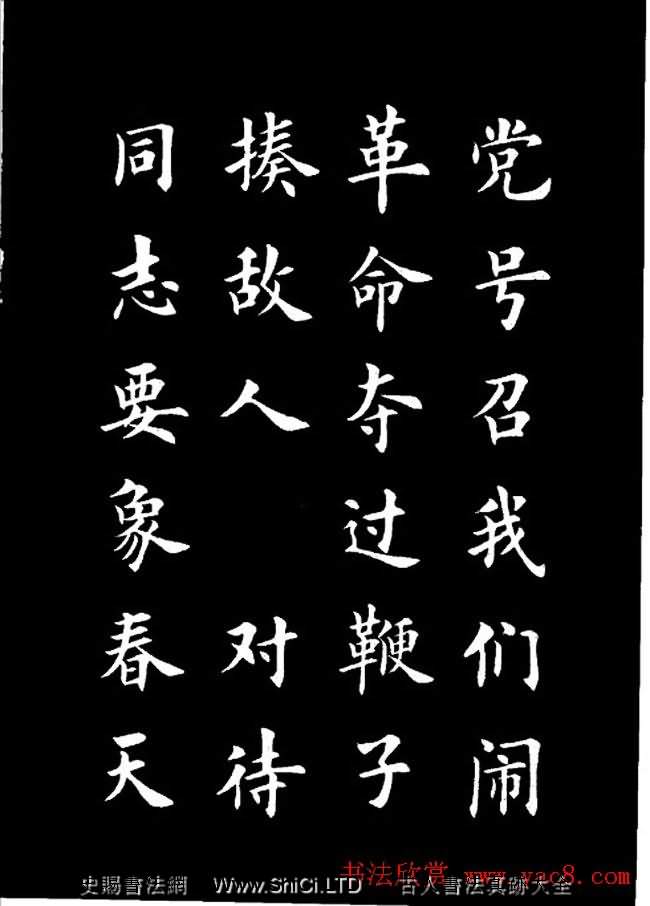 党号召我们闹
革命夺过鞭子
揍敌人 对待
同志要象春天
书法欣赏 www.yac8.com
史賜書法網 Www.ShiCi.LTD 古人書法真跡大全